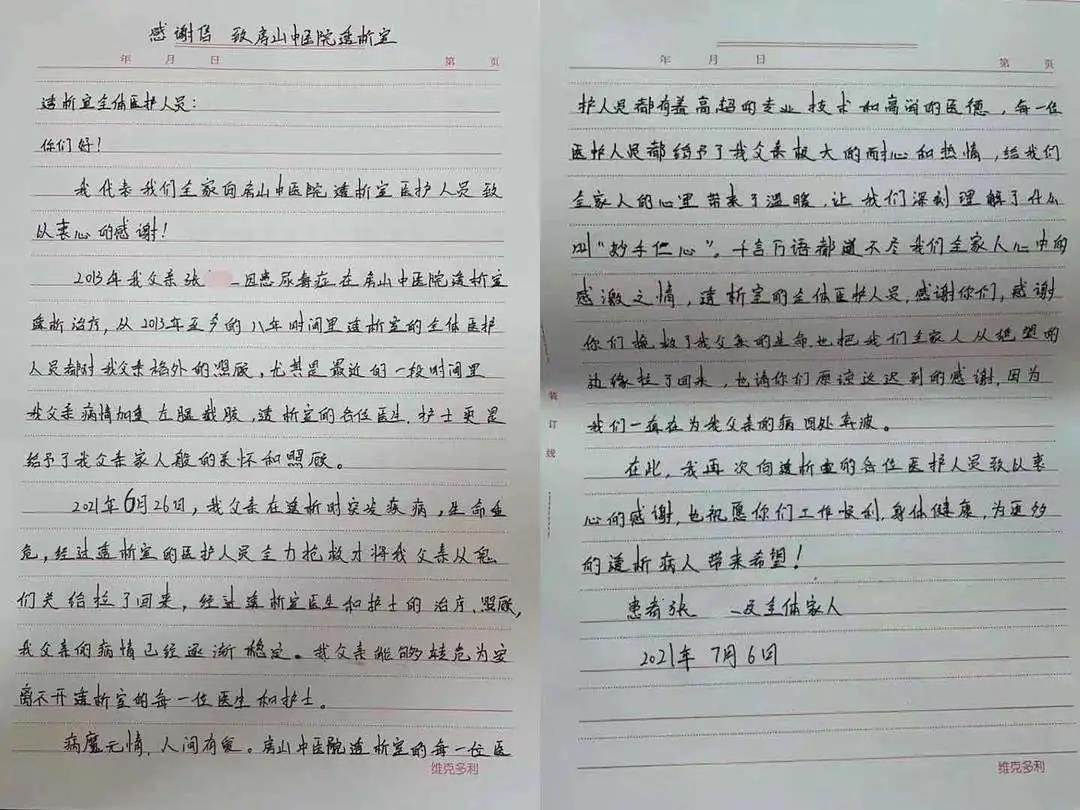 感谢信 致房山中医院透析室
年 月 日 第 页
透析室全体医护人员：
你们好！
我代表我们全家向房山中医院透析室医护人员致
以衷心的感谢！
2013年我父亲张 因患尿毒症在房山中医院透析室
透析治疗，从2013年至今的八年时间里透析室的全体医护
人员都对我父亲格外的照顾，尤其是最近的一段时间里
我父亲病情加重左腿截肢，透析室的各位医生、护士更是
给予了我父亲家人般的关怀和照顾。
2021年6月26日，我父亲在透析时突发疾病，生命垂
危，经过透析室的医护人员全力抢救才将我父亲从鬼
们关给拉了回来，经过透析室医生和护士的治疗、照顾，
我父亲的病情已经逐渐稳定。我父亲能够转危为安
离不开透析室的每一位医生和护士。
病魔无情，人间有爱。房山中医院透析室的每一位医
维克多利
年 月 日 第 页
护人员都有着高超的专业技术和高尚的医德，每一位
医护人员都给予了我父亲极大的耐心和热情，给我们
全家人的心里带来了温暖，让我们深刻理解了什么
叫“妙手仁心”。千言万语都道不尽我们全家人心中的
感激之情，透析室的全体医护人员，感谢你们，感谢
你们挽救了我父亲的生命也把我们全家人从绝望的
边缘拉了回来，也请你们原谅这迟到的感谢，因为
我们一直在为我父亲的病四处奔波。
在此，我再次向透析室的各位医护人员致以衷
心的感谢，也祝愿你们工作顺利，身体健康，为更多
的透析病人带来希望！
患者张 及全体家人
2021年7月6日
装订线
维克多利